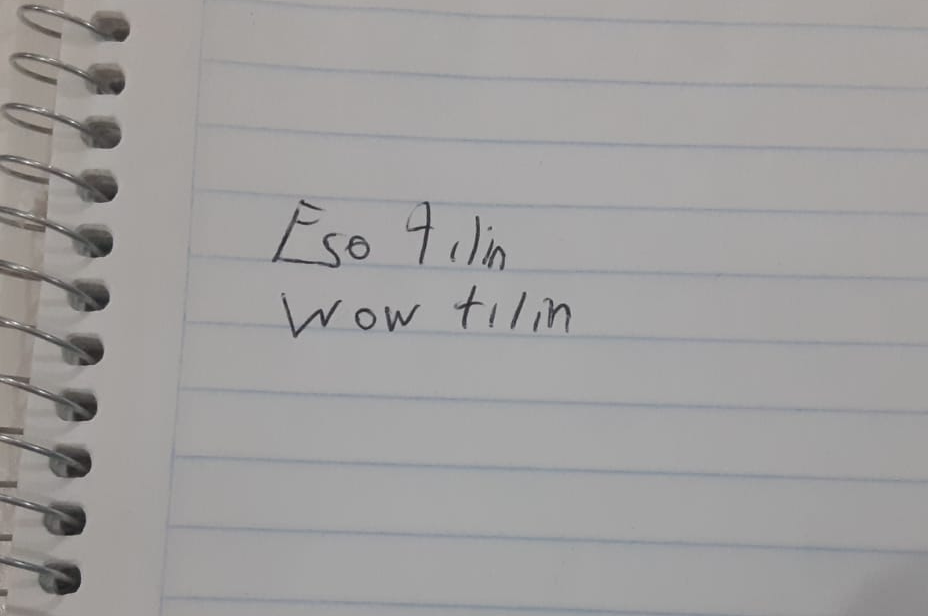 Eso tilin
Wow tilin